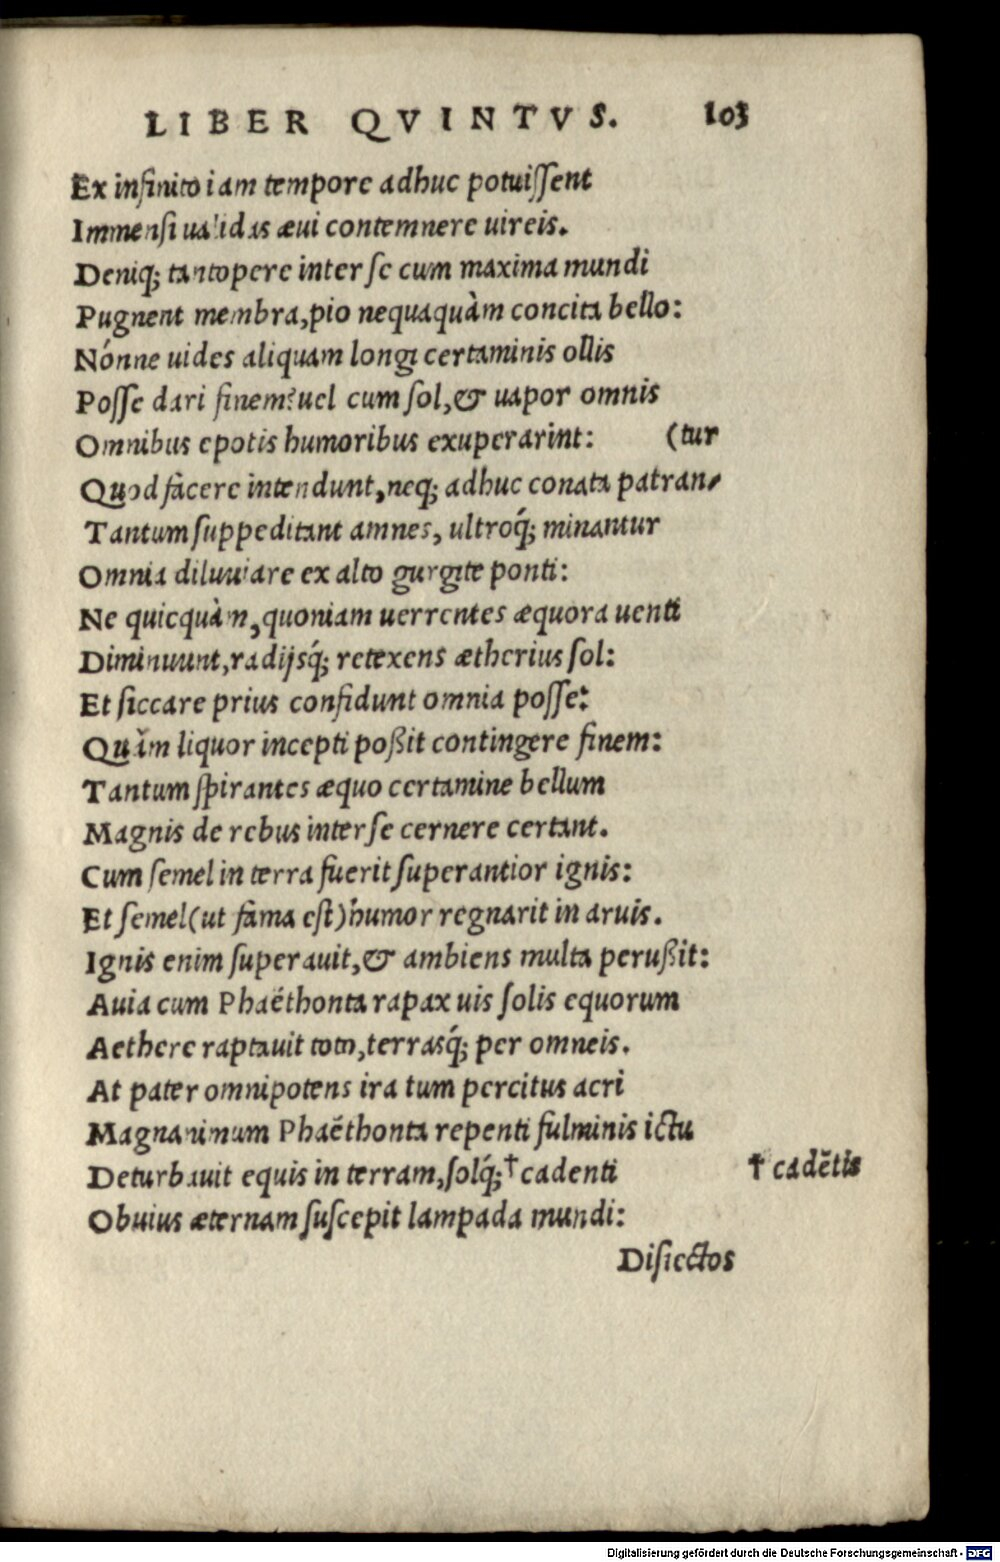 LIBER QVINTVS. 103
Ex infinito iam tempore adhuc potuiſſent
Immenſi ualidas æui contemnere uireis.
Deniq; tantopere inter ſe cum maxima mundi
Pugnent membra, pio nequaquàm concita bello:
Nónne uides aliquam longi certaminis ollis
Poſſe dari finem? uel cum ſol, & uapor omnis
Omnibus epotis humoribus exuperarint: (tur
Quod facere intendunt, neq; adhuc conata patran-
Tantum ſuppeditant amnes, ultroq́; minantur
Omnia diluuiare ex alto gurgite ponti:
Ne quicquàm, quoniam uerrentes æquora uenti
Diminuunt, radijsq́; retexens ætherius ſol:
Et ſiccare prius confidunt omnia poſſe:
Quàm liquor incepti poßit contingere finem:
Tantum ſpirantes æquo certamine bellum
Magnis de rebus inter ſe cernere certant.
Cum ſemel in terra fuerit ſuperantior ignis:
Et ſemel (ut fama eſt) humor regnarit in aruis.
Ignis enim ſuperauit, & ambiens multa perußit:
Auia cum Phaëthonta rapax uis ſolis equorum
Aethere raptauit toto, terrasq́; per omneis.
At pater omnipotens ira tum percitus acri
Magnanimum Phaëthonta repenti fulminis ictu
Deturbauit equis in terram, ſolq́; † cadenti † cadẽtis
Obuius æternam ſuſcepit lampada mundi:
Diſiectos
Digitalisierung gefördert durch die Deutsche Forschungsgemeinschaft - DFG